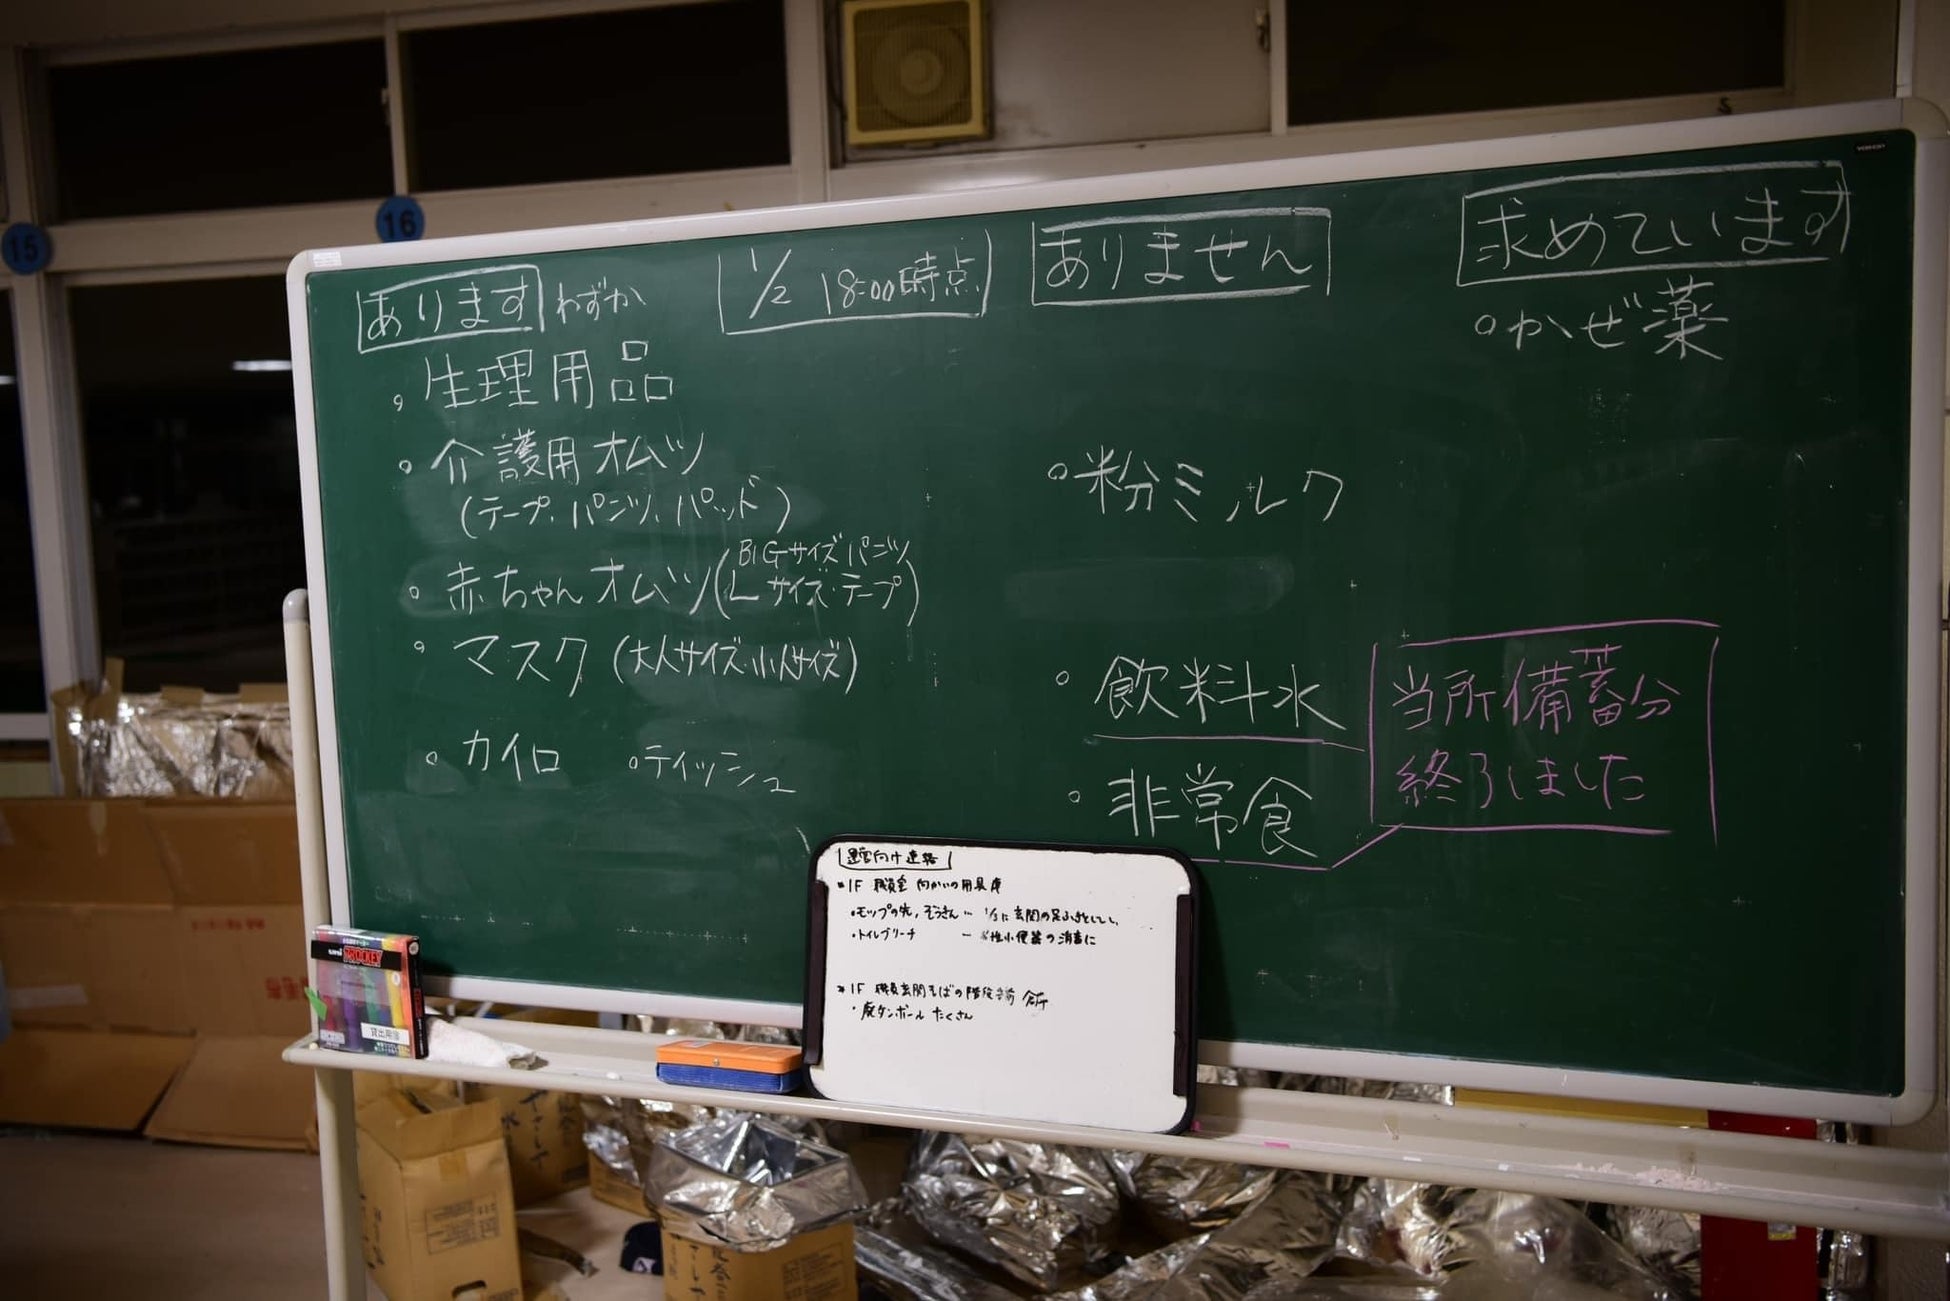 15
16
あります わずか
1/2 18:00時点
ありません
求めています
・生理用品
・介護用オムツ
(テープ、パンツ、パッド)
・赤ちゃんオムツ(BIGサイズパンツ
Lサイズ・テープ)
・マスク(大人サイズ・小人サイズ)
・カイロ ・ティッシュ
・粉ミルク
・飲料水
・非常食
当所備蓄分
終了しました
・かぜ薬
運営向け連絡
1F 職員室 向かいの用具庫
・モップの先、ぞうきん… 1/3に玄関の足ふきとして
・トイレブリーチ の消毒に
1F 職員玄関そばの階段
・廃ダンボール たくさん
PROCKEY
貸出用